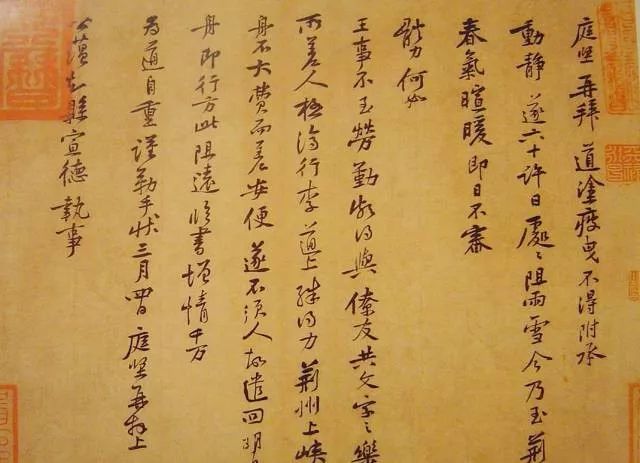 庭堅再拜 道塗疲曳不得附承
動靜 遂六十許日處〻阻雨雪今乃至荊
春氣暄暖即日不審
體力何如
王事不至勞勤頗得與僚友共文字之樂
所差人極濟行李道上殊得力荊州上峽
舟不大費而差安便遂不須人故遣回明日
舟即行方此阻遠臨書增情千万
為道自重謹勒手狀三月四日庭堅再拜上
公蘊知縣宣德執事